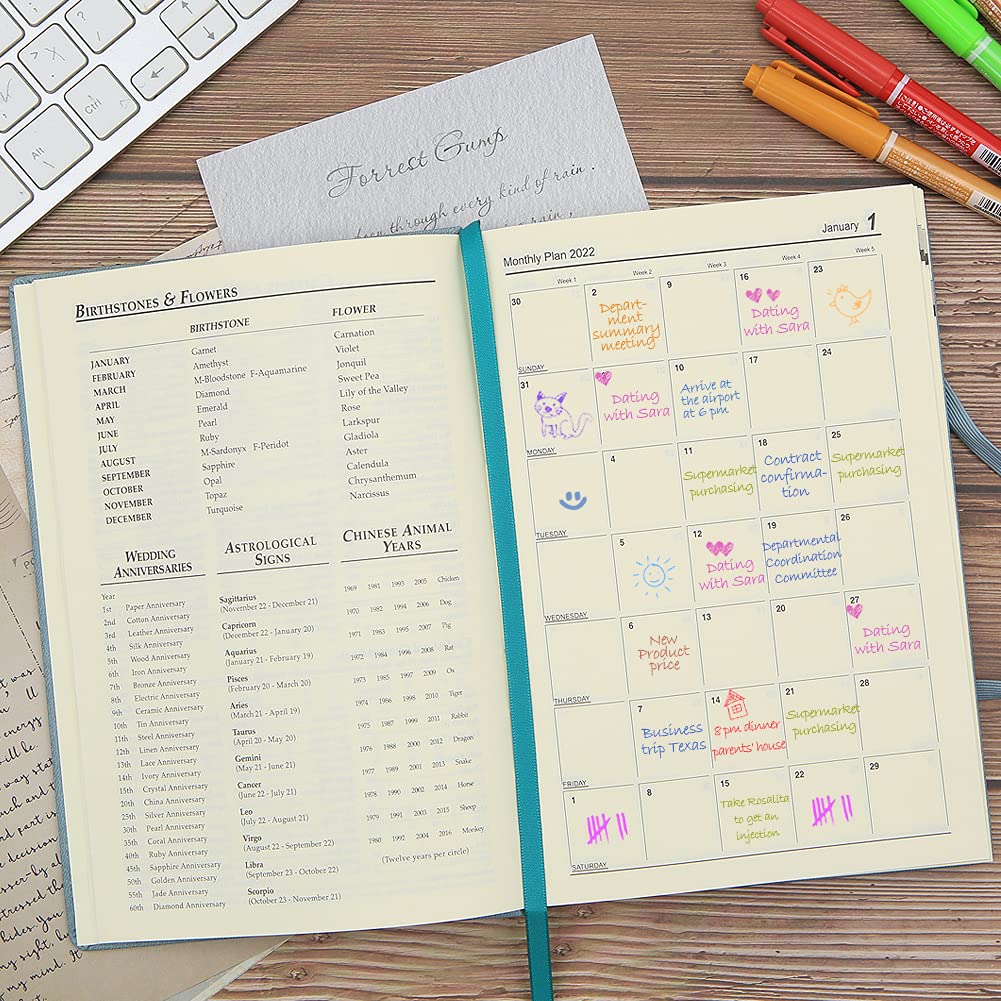 Alt
Ctrl
Forrest Gump
through every kind of rain .
rain ,
BIRTHSTONES & FLOWERS
BIRTHSTONE FLOWER
JANUARY Garnet Carnation
FEBRUARY Amethyst Violet
MARCH M-Bloodstone F-Aquamarine Jonquil
APRIL Diamond Sweet Pea
MAY Emerald Lily of the Valley
JUNE Pearl Rose
JULY Ruby Larkspur
AUGUST M-Sardonyx F-Peridot Gladiola
SEPTEMBER Sapphire Aster
OCTOBER Opal Calendula
NOVEMBER Topaz Chrysanthemum
DECEMBER Turquoise Narcissus
WEDDING
ANNIVERSARIES
Year
1st Paper Anniversary
2nd Cotton Anniversary
3rd Leather Anniversary
4th Silk Anniversary
5th Wood Anniversary
6th Iron Anniversary
7th Bronze Anniversary
8th Electric Anniversary
9th Ceramic Anniversary
10th Tin Anniversary
11th Steel Anniversary
12th Linen Anniversary
13th Lace Anniversary
14th Ivory Anniversary
15th Crystal Anniversary
20th China Anniversary
25th Silver Anniversary
30th Pearl Anniversary
35th Coral Anniversary
40th Ruby Anniversary
45th Sapphire Anniversary
50th Golden Anniversary
55th Jade Anniversary
60th Diamond Anniversary
ASTROLOGICAL
SIGNS
Sagittarius
(November 22 - December 21)
Capricorn
(December 22 - January 20)
Aquarius
(January 21 - February 19)
Pisces
(February 20 - March 20)
Aries
(March 21 - April 19)
Taurus
(April 20 - May 20)
Gemini
(May 21 - June 21)
Cancer
(June 22 - July 21)
Leo
(July 22 - August 21)
Virgo
(August 22 - September 22)
Libra
(September 23 - October 22)
Scorpio
(October 23 - November 21)
CHINESE ANIMAL
YEARS
1969 1981 1993 2005 Chicken
1970 1982 1994 2006 Dog
1971 1983 1995 2007 Pig
1972 1984 1996 2008 Rat
1973 1985 1997 2009 Ox
1974 1986 1998 2010 Tiger
1975 1987 1999 2011 Rabbit
1976 1988 2000 2012 Dragon
1977 1989 2001 2013 Snake
1978 1990 2002 2014 Horse
1979 1991 2003 2015 Sheep
1980 1992 2004 2016 Monkey
(Twelve years per circle)
Monthly Plan 2022 January 1
Week 1 Week 2 Week 3 Week 4 Week 5
30 2 9 16 23
Depart-
ment
summary
meeting
Dating
with Sara
SUNDAY
31 10 17 24
Dating
with Sara
Arrive at
the airport
at 6 pm
MONDAY
4 11 18 25
Supermarket
purchasing
Contract
confirma-
tion
Supermarket
purchasing
TUESDAY
5 12 19 26
Dating
with Sara
Departmental
Coordination
Committee
WEDNESDAY
6 13 20 27
New
Product
price
Dating
with Sara
THURSDAY
7 14 21 28
Business
trip Texas
8 pm dinner
parents' house
Supermarket
purchasing
FRIDAY
1 8 15 22 29
Take Rosalita
to get an
injection
SATURDAY